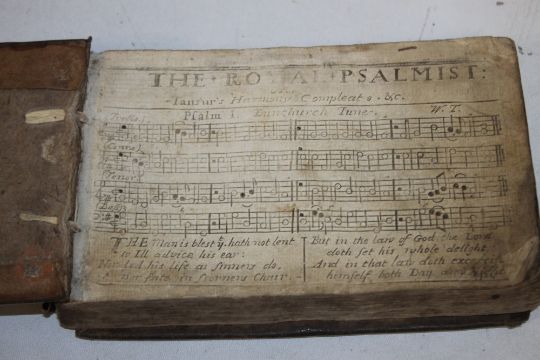 THE ROYAL PSALMIST:
Or,
Tansur's Harmony Compleat &c.
Psalm 1. Dunchurch Tune. W. T.
Treble
Tenor
Bass
THE Man is blest yt. hath not lent
to Ill advice his ear:
Nor led his life as sinners do,
nor sate in scorners Chair.
But in the law of God the Lord
doth set his whole delight
And in that law doth exercise
himself both Day and Night